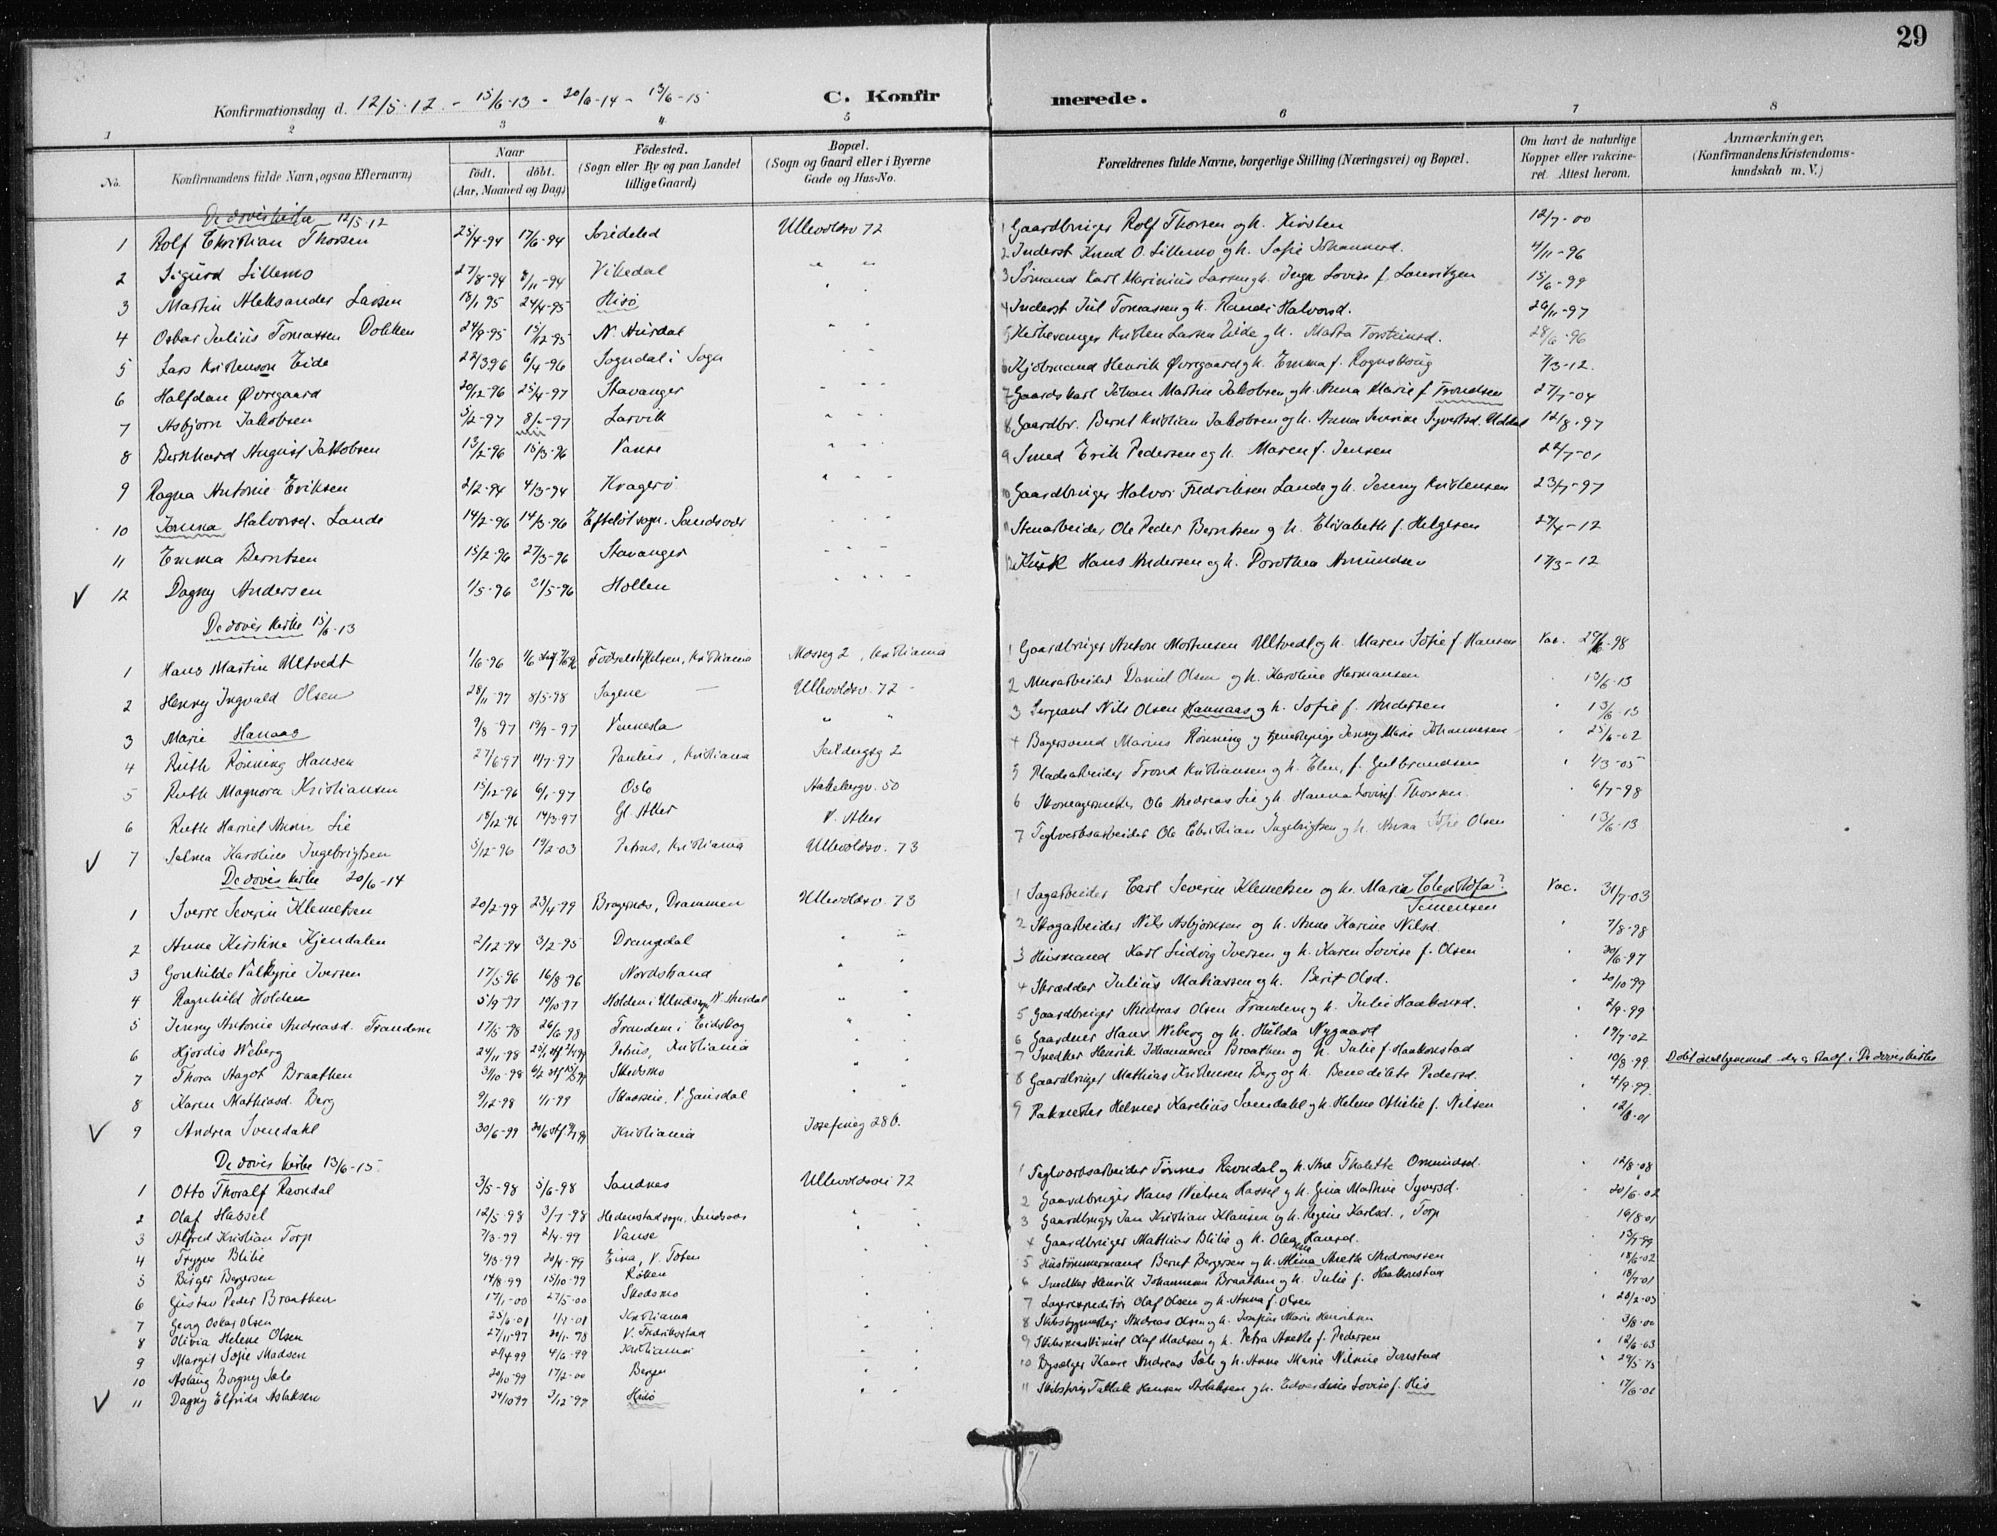 29
Konfirmationsdag d. 12/5-12 - 15/6-13 - 20/6-14 - 13/6-15
C. Konfirmerede.
1 2 3 4 5 6 7 8
No. Konfirmandens fulde Navn, ogsaa Efternavn) Naar født. døbt. (Aar, Maaned og Dag) Fødested. (Sogn eller By og paa Landet tillige Gaard) Bopæl. (Sogn og Gaard eller i Byerne Gade og Hus-No. Forældrenes fulde Navne, borgerlige Stilling (Næringsvei) og Bopæl. Om havt de naturlige Kopper eller vakcineret. Attest herom. Anmærkninger. (Konfirmandens Kristendomskundskab m. V.)
De døves kirke 12/5-12
1 Rolf Christian Thorsen 25/4-94 17/6-94 Søndeled Ullevoldsv 72 1 Gaardbruger Rolf Thorsen og h. Kirsten 12/7-00
2 Sigurd Lillemo 27/8-94 4/11-94 Vikedal " " 2 Inderst Knud O. Lillemo og h. Sofie Johannesd. 4/11-96
3 Martin Aleksander Larsen 18/1 95 24/4-95 Hisø " " 3 Sømand Karl Marinius Larsen og h. Inga Lovise f. Lauritzen 15/6-99
4 Oskar Julius Tomassen Dokken 24/9-95 15/12-95 N. Aurdal " " 4 Inderst Jul Tomassen og h. Randi Halvorsd. 26/11-97
5 Lars Kristenson Eide 22/3 96 6/4-96 Sogndal i Sogn " " 5 Kirkesanger Kristen Larsen Eide og h. Marta Torsteinsd. 28/6-96
6 Halfdan Øvregaard 20/12-96 25/4-97 Stavanger " " 6 Kjøbmand Henrik Øvregaard og h. Emma f. 7/3-12.
7 Asbjørn Jakobsen 5/2-97 8/ -97 Larvik " " 7 Gaardskarl Johan Martin Jakobsen og h. Anna Marie f. Trondsen 27/7-04
8 Bernhard August Jakobsen 13/2-96 15/3-96 Vanse " " 8 Gaardbr. Bernt Kristian Jakobsen og h. Anna Severine Syvertsd. 12/8-97
9 Ragna Antonie Eriksen 2/2-94 4/3-94 Kragerø " " 9 Smed Erik Pedersen og h. Maren f. Jensen 22/7-01
10 Jonna Halvorsd. Lande 14/2-96 14/3-96 Efteløt sogn. Sandsvær " " 10 Gaardbruger Halvor Fredriksen Lande og h. Jenny Kristensen 23/7-97
11 Emma Berntsen 15/2-96 27/3-96 Stavanger " " 11 Stenarbeider Ole Peder Berntsen og h. Elisabeth f. Helgesen 29/4-12
12 Dagny Andersen 1/5-96 31/5-96 Hollen " " 12 Kusk Hans Andersen og h. Dorothea Amundsen 17/3-12
De døves kirke 15/6-13
1 Hans Martin Ultvedt 1/6-96 Fødselsstiftelsen, Kristiania Mosseg 2, Kristiania 1 Gaardbruger Anton Mortensen Ultvedt og h. Maren Sofie f. Hansen Vac. 29/6-98
2 Henry Ingvald Olsen 28/11-97 8/5-98 Sagene — Ullevoldsv. 72 - 2 Murarbeider Daniel Olsen og h. Karoline Hermansen " 13/6-13
3 Marie Hanaas 9/8-97 19/9-97 Vennesla " " 3 Sergeant Nils Olsen Hannaas og h. Sofie f. Andersen " 13/6-13
4 Ruth Rønning Hansen 27/6-97 11/7-97 Paulus, Kristiania 2 4 Bagersvend Marius Rønning og tjenestepige Jenny Marie Johannesen " 25/6-02
5 Ruth Magnora Kristiansen 15/12-96 6/1-97 Oslo Aakebergv. 50 5 Pladsarbeider Trond Kristiansen og h. Elen, f. Gulbrandsen " 4/3-05
6 Ruth Harriet Lie 18/12-96 14/3-97 Gl. Aker V. Aker 6 Skomagermester Ole Andreas Lie og h. Hanna Lovise f. Thoresen " 6/7-98
7 Selma Karoline Ingebrigtsen 5/12-96 19/2-03 Petrus, Kristiania Ullevoldsv. 73 7 Teglverksarbeider Ole Christian Ingebrigtsen og h. Anna Sofie Olsen " 13/6-13
De døves kirke 20/6-14
1 Sverre Severin Klemetsen 20/2-99 23/4-99 Bragernes, Drammen Ullevoldsv. 73 1 Sagarbeider Carl Severin Klemetsen og h. Maria Simensen Vac. 31/7-03
2 Anne Kirstine Kjendalen 2/12-94 3/2-95 Drangedal " " 2 Skogarbeider Nils Asbjørnsen og h. Anne Karine Nilsd. " 7/8-98
3 Gonhilde Valkyrie Iversen 17/5-96 16/8-96 Nordstrand " " 3 Husmand Karl Ludvig Iversen og h. Karen Lovise f. Olsen 20/6-97
4 Ragnhild Holden 5/9-97 10/10-97 Holden i N. Aurdal " " 4 Skrædder Julius Mathiassen og h. Berit Olsd. " 20/10-99
5 Jenny Antonie Andreasd. Trandem 17/5-98 26/6-98 Trandem i Eidskog " 5 Gaardbruger Andreas Olsen Trandem og h. Julie Haakonsd. " 2/9-99
6 Hjørdis Weberg 24/11-98 Petrus, Kristiania " 6 Gaardener Hans Weberg og h. Hulda Nygaard " 19/7-02
7 Thora Aagot Braathen 3/10-98 Skedsmo " 7 Snedker Henrik Johannesen Braathen og h. Julie f. Haakonstad " 10/8-99 Døbt i De døves kirke
8 Karen Mathiasd. Berg 9/12-98 1/1-99 V. Gausdal " 8 Gaardbruger Mathias Kristensen Berg og h. Benedikte Pedersd. " 4/9-99.
9 Andrea Svendahl 30/6-99 Kristiania Josefinesg 28b. 9 Pakmester Helmer Karelius Svendahl og h. Helene Othilie f. Nilsen " 12/8-01
De døves kirke 13/6-15
1 Otto Thoralf Ravndal 3/5-98 5/6-98 Sandnes Ullevoldsvei 72 1 Teglværksarbeider Tønnes Ravndal og h. Ane Thalette Omundsd. " 12/8-08
2 Olaf Hassel 12/5-98 3/7-98 Hedenstad sogn, Sandsvær " 2 Gaardbruger Hans Nielsen Hassel og h. Gina Mathea Syversd. " 20/6-02
3 Alfred Kristian Torp 7/3-99 2/4-99 Vanse " 3 Gaardbruger Jan Kristian Klausen og h. Regine Karlsd., Torp 16/8-01
4 Trygve Blilie 9/3-99 20/4-99 Eina, V. Toten " 4 Gaardbruger Mathias Blilie og h. Olea Hansd. 13/7-99
5 Birger Bergersen 14/8-99 15/10-99 Røken " 5 Hustømmermand Bernt Bergersen og h. Mina Andreassen 18/6-02
6 Gustav Peder Braathen 17/1-00 27/5-00 Skedsmo " 6 Snedker Henrik Johannesen Braathen og h. Julie f. Haakonstad 18/7-01
7 Georg Oskar Olsen 25/6-01 1/9-01 Kristiania " 7 Lagerexpeditør Olaf Olsen og h. Anna f. Olsen 20/2-03
8 Olivia Helene Olsen 27/11-97 20/1-98 V. Fredrikstad " 8 Skibsbygmester Andreas Olsen og h. Josefine Marie Henriksen 3/8-00
9 Margit Sofie Madsen 29/4 99 4/6-99 Kristiania " 9 Skibsmaskinist Olaf Madsen og h. Petra Anette f. Pedersen " 12/6-03
10 Aslaug Borgny Sæle 20/10-99 17/2-00 Bergen " 10 Bysælger Kaare Andreas Sæle og h. Anne Marie " 29/5-
11 Dagny Elfrida Aslaksen 24/10 99 3/12-99 Hisø " 11 Tallak Hansen Aslaksen og h. Edvardine Lovise f. His " 17/6-01